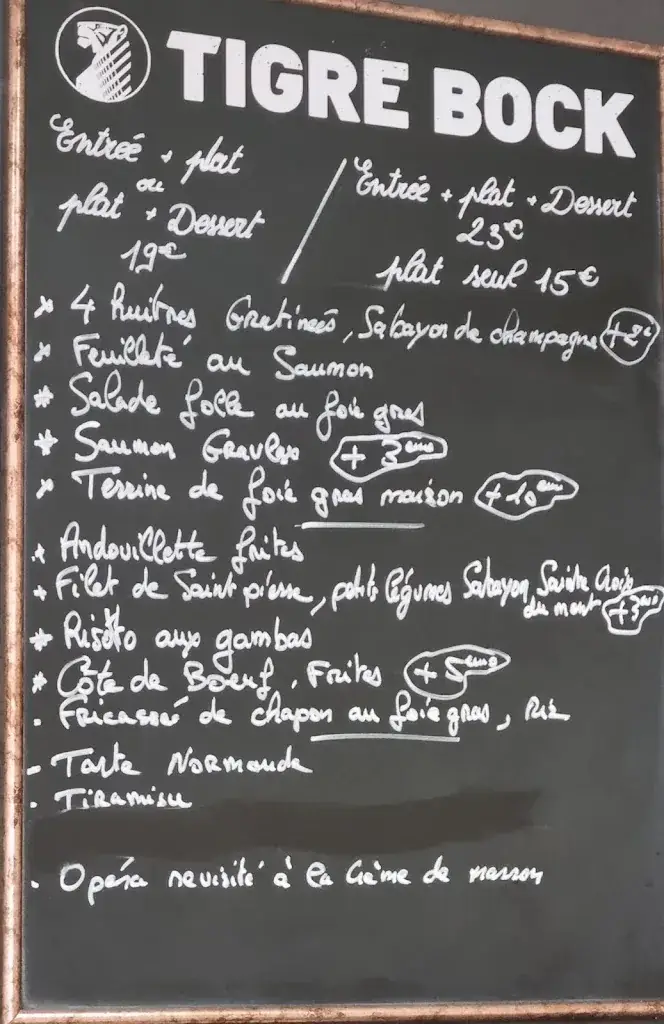 TIGRE BOCK
Entrée + plat
ou
plat + Dessert
19€
Entrée + plat + Dessert
23€
plat seul 15€
* 4 Huitres Gratineés, Sabayon de champagne +2€
* Feuilleté au Saumon
* Salade folle au foie gras
* Saumon Gravlax + 3 euros
* Terrine de foie gras maison + 10 euros
* Andouillette frites
* Filet de Saint pierre, petits légumes Sabayon, Sainte Croix
du mont +3 euros
* Risotto aux gambas
* Côte de Boeuf, Frites + 5 euros
. Fricassé de chapon au foie gras, Riz
- Tarte Normande
. Tiramisu
. Opéra revisité à la Crème de marron